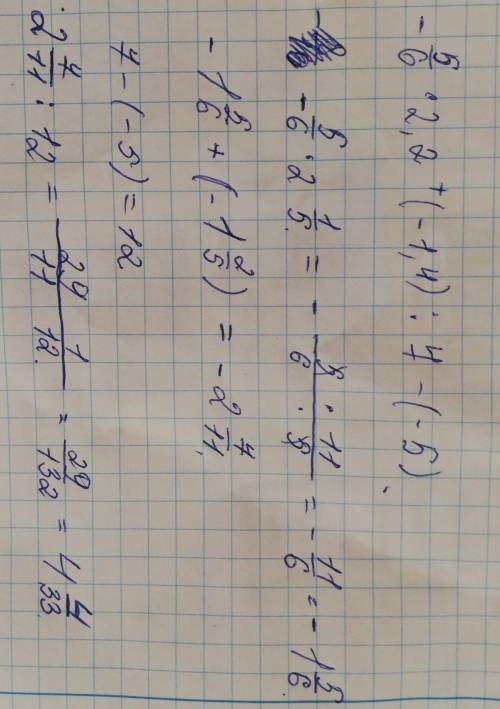 - 5/6 · 2,2 + (-1,4) : 7 - (-5)
- 5/6 · 2 1/5 = - 5 · 11 / 6 · 5 = - 11/6 = - 1 5/6
- 1 5/6 + (- 1 2/5) = - 2 7/11
7 - (-5) = 12
2 7/11 : 12 = 29/11 1/12 = 29/132 = 4 4/33